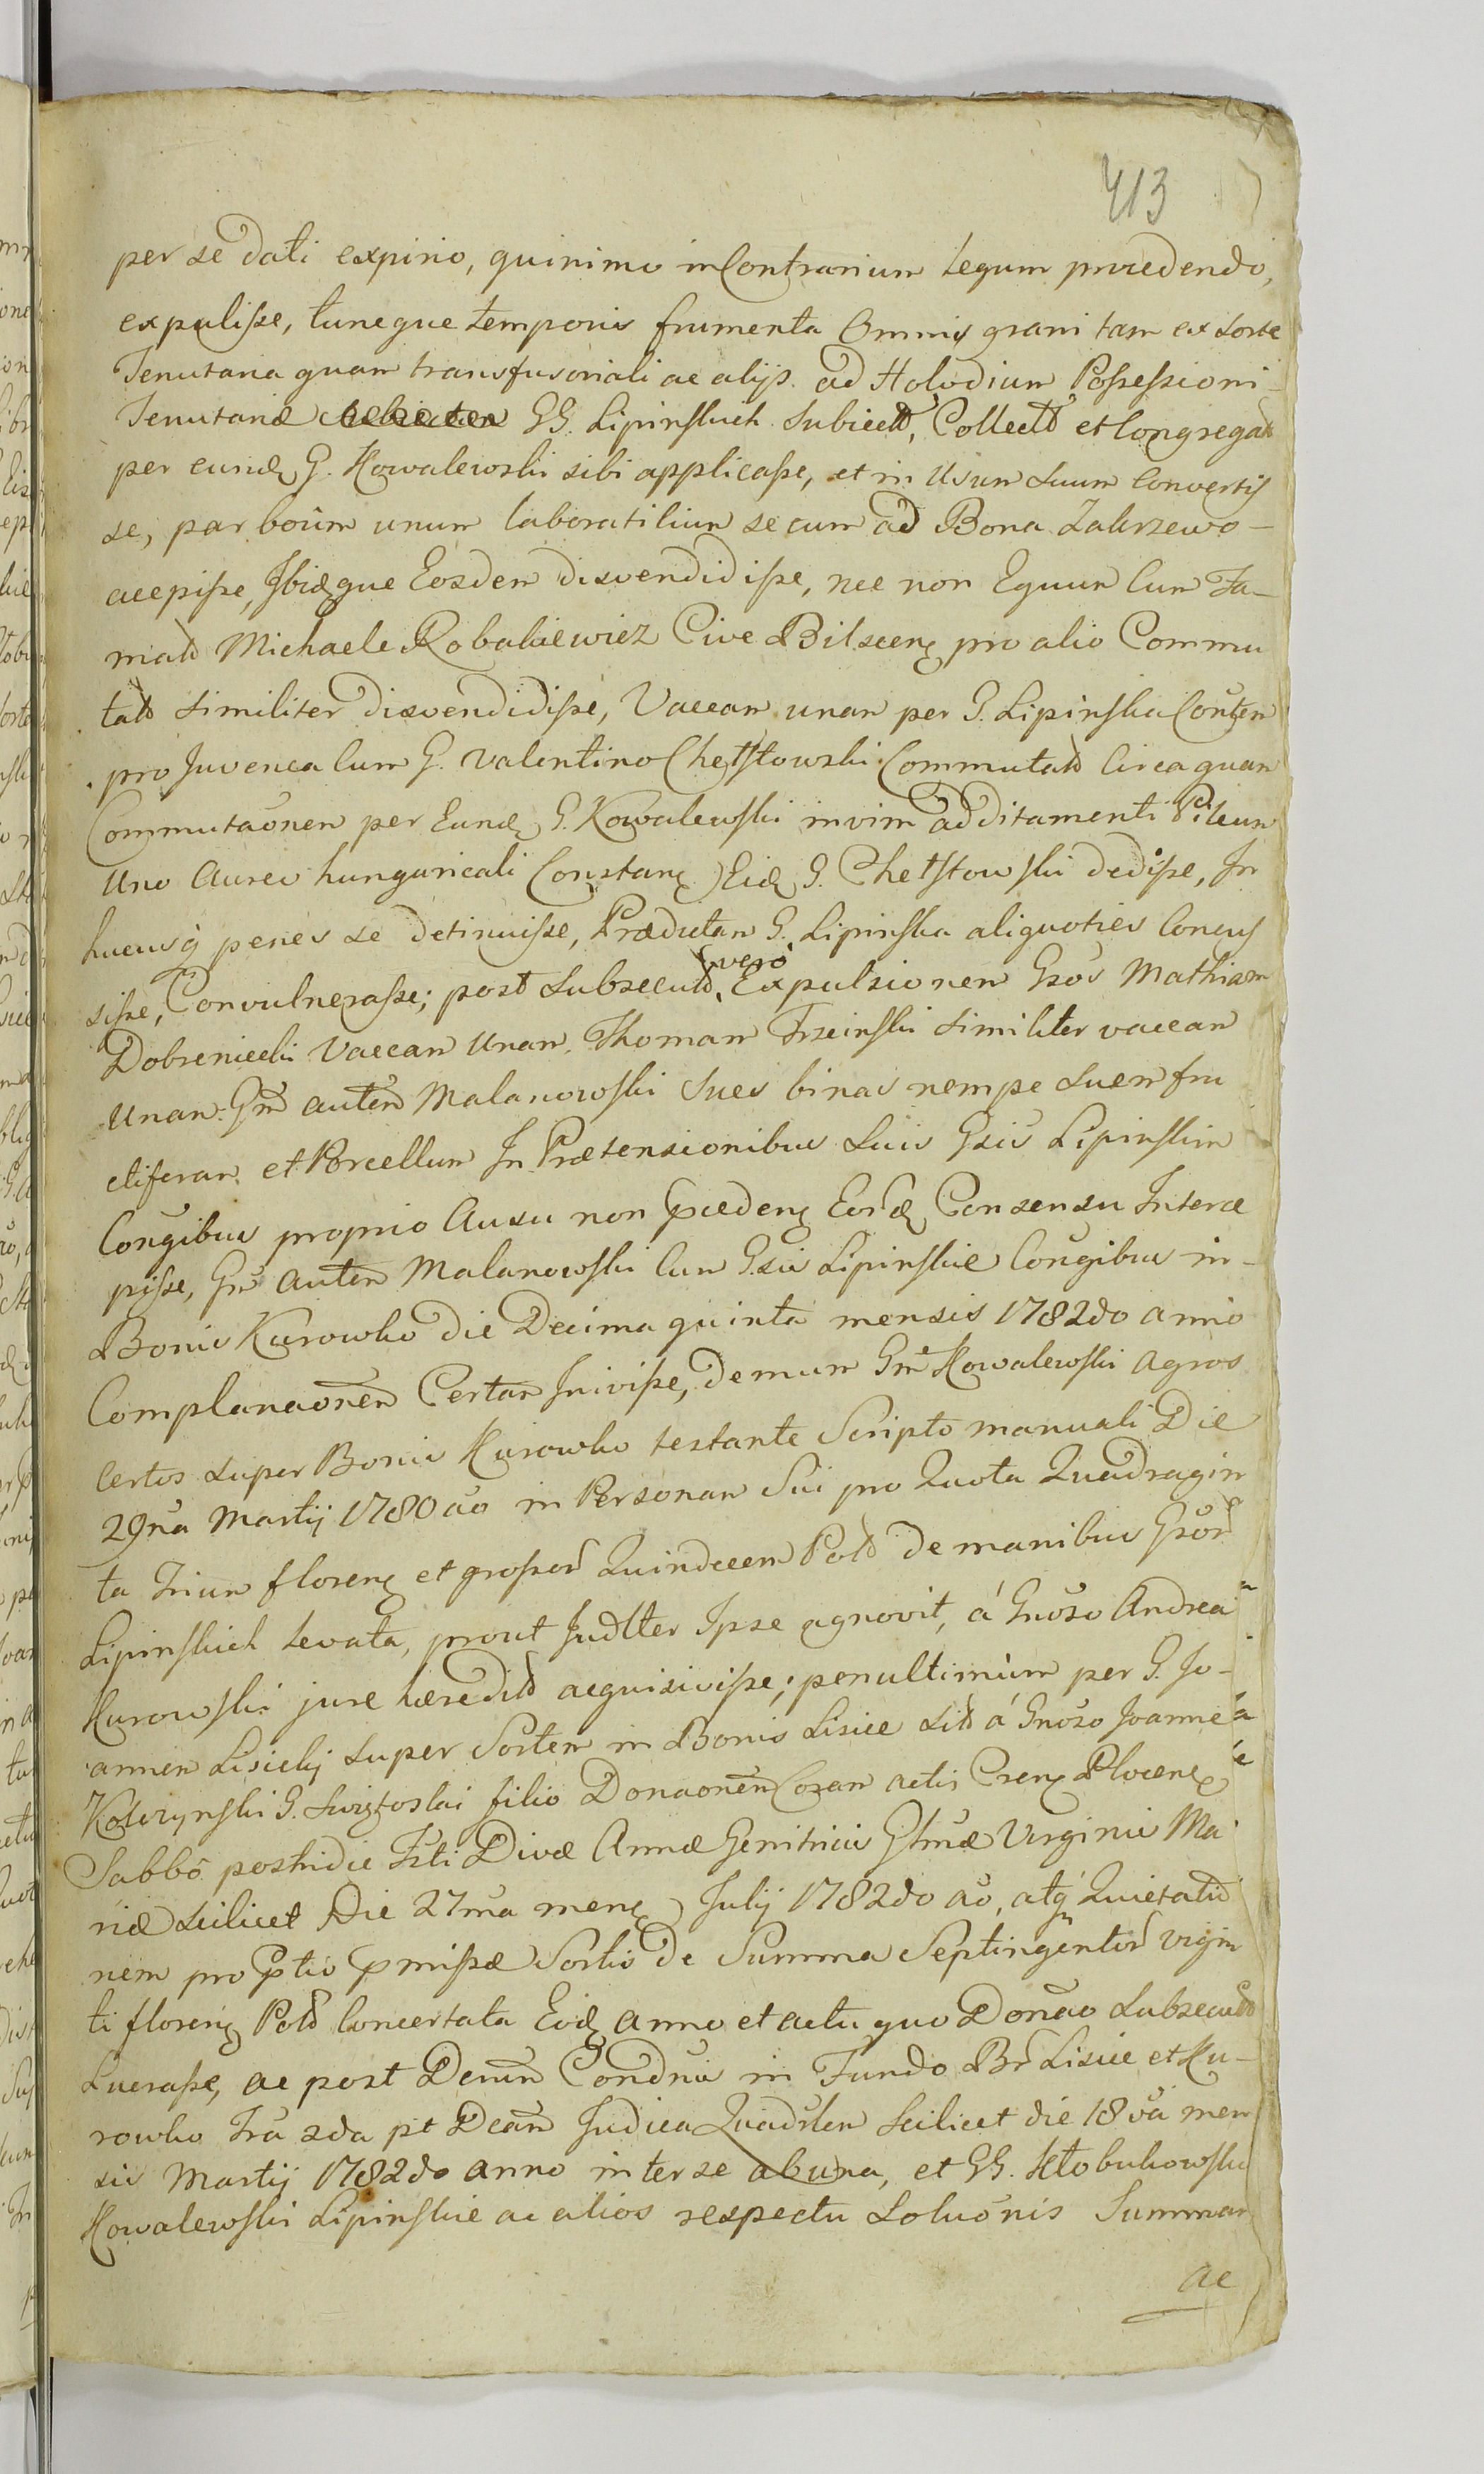 413
per se dati expirio, quinimo in Contrarium Legum procedendo,
expulisse, tuncque temporis frumenta Omnis grani tam ex sorte
Tenutaria quam transfusoriali ac alijs ad Holodium Possessioni
Tenutariæ GG. Lipinskich Subiect, Collect et Congregat
per eund G. Kowalewski sibi applicasse, et in Usum Suum Convertis
se, par boum unum laboratilium secum ad Bona Zakrzewo
accepisse, Ibidque Eosdem disvendidisse, nec non Equum Cum Fa-
mato Michaele Robakiewicz Cive Bilscen pro alio Commu
tato similiter disvendidisse, Vaccam unam per G. Lipinska Conten
pro Juvenca Cum G. Valentino Chełstowski Commutato Circa quam
Commutaonem per Eund G. Kowalewski in vim additamenti Pileum
Uno Aureo hungaricali Constan Eid G. Chełstowski dedisse, In
hucusq penes se detinuisse, Prædictam G. Lipinska aliquoties Concus
sisse, Convulnerasse; post Subsecut vero Expulsionem Gsos Mathiam
Dobreniecki Vaccam Unam, Thomam Trzcinski Similiter vaccam
Unam. Gm autem Malanowski Sues binas nempe Suem fru
ctiferam et Porcellum In Prætensionibus Suis Gsis Lipinskim
Cougibus proprio Ausu non præceden Eord Consensu Interce
pisse, Gm autem Malanowski Cum Gsis Lipinskie Cougibus in
Bonis Kurowko die Decima quinta mensis 1782do anno
Complanaonem Certam Inivisse, demum Gm Kowalewski agros
Certos super Bonis Kurowko testante Scripto manuali Die
29na Martij 1780 ao in Personam Sui pro Quota Quadragin
ta Trium floren et grossor Quindecem Pol de manibus Gsor
Lipinskich levata, prout Judlter Ipse agnovit, á Gnoso Andrea
Kurowski jure hæredit acquisivisse; penultimum per G. Jo-
annem Lisicky super Sortem in Bonis Lisice Sit á Gnoso Joanne
filio Donaonem Coram actis Cren Plocen
Sabbo postridie Fsti Divæ Annæ Genitricis Glmæ Virginis Ma
riæ scilicet Die 27ma men Julij 1782do ao, atq Quietatio
nem pro ptio pmissæ Sortis de Summa Septingentor vigin
ti floren Pol Concertata Eod anno et actu quo Donao Subsecuto
Lucrasse, ac post Demum Condnia in Fundo Br Lisice et Ku-
rowko Fra 2da pt Dcam Judica Quadrlem scilicet die 18va men
sis Martij 1782do anno inter se ab una, et GG. Kłobukowski
Kowalewski Lipinskie ac alios respectu Soluonis Summar
ac